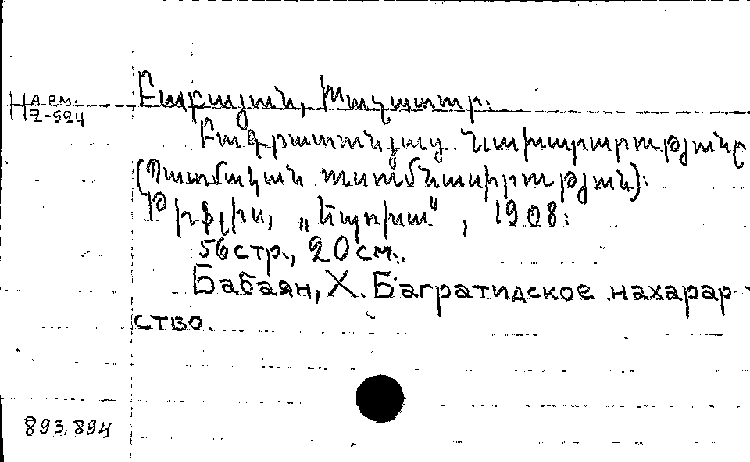 На арм.
2-524
Բաբայան, Խաչատուր.
Բագրատունյաց նախարարությունը
(Պատմական ուսումնասիրություն):
Թիֆլիս, „Էսպերիա", 1908:
56 стр., 20 см.
Бабаян, Х. Багратидское нахарар-
ство.
893.894